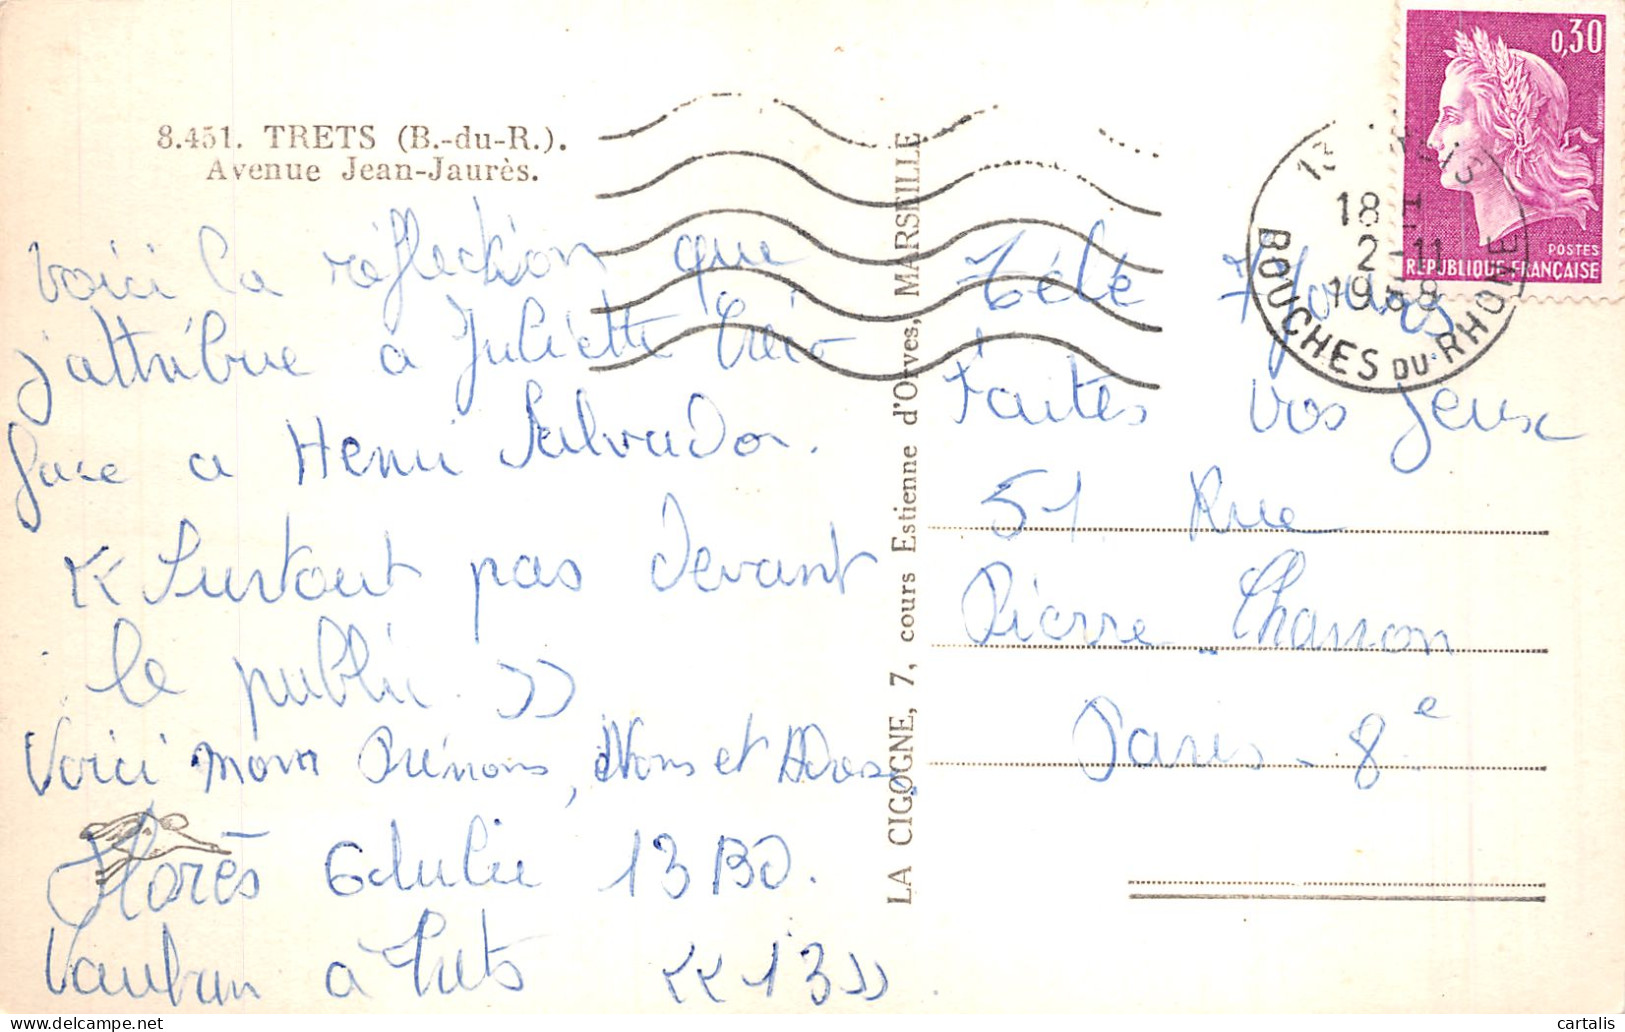 8.451. TRETS (B.-du-R.).
Avenue Jean-Jaurès.
Voici la réflection que
j'attribue a Juliette Gréco
face a Henri Salvador.
<< Surtout pas devant
le public. >>
Voici mom Prénoms, Noms et Adresse
Florès Edulie 13 BD.
Vauban a Trets <<13>>.
LA CIGOGNE, 7, cours Estienne d'Orves, MARSEILLE
0,30
POSTES
REPUBLIQUE FRANÇAISE
13 TRETS
18 H
2-11
1968
BOUCHES DU RHONE
Télé 7 Jours
Faites vos Jeux
51 Rue
Pierre Charron
Paris - 8e
cartalis